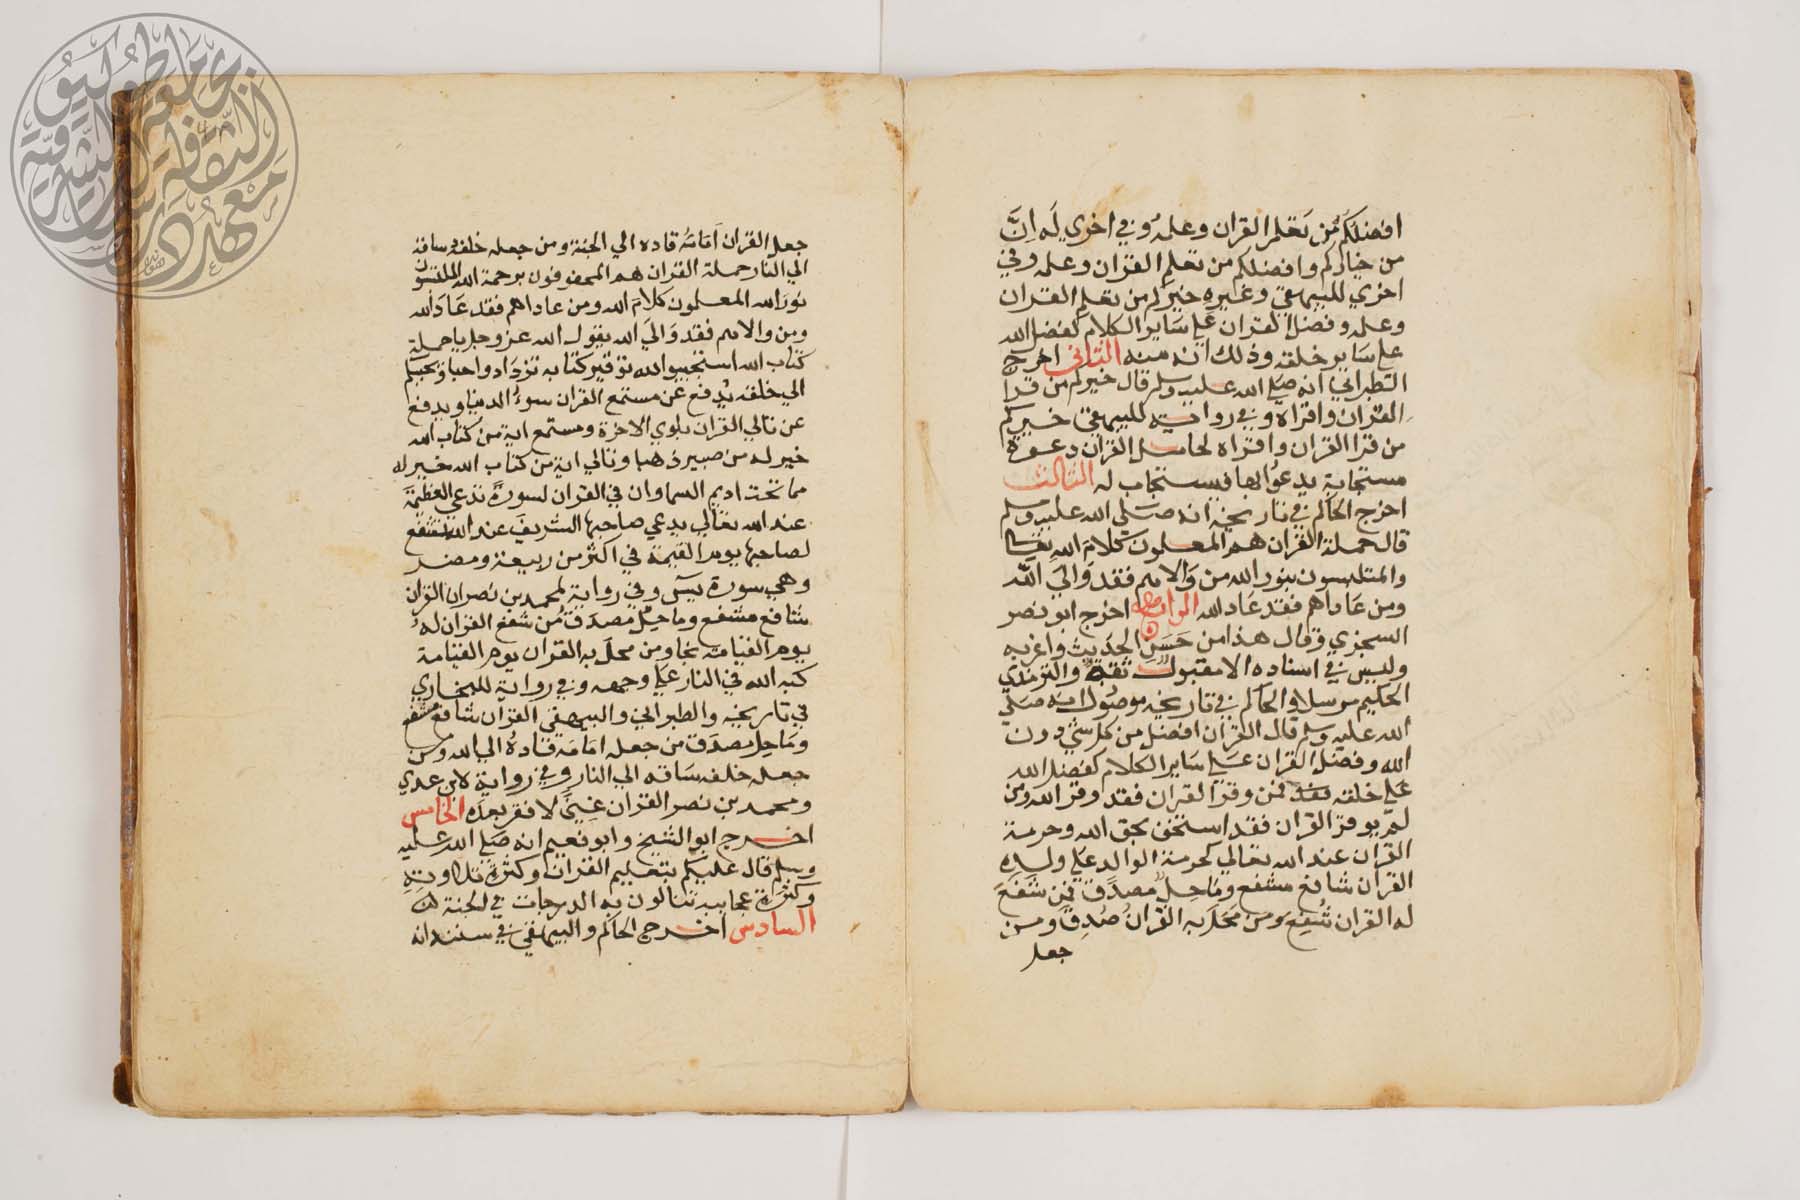 افضلكم من تعلم القران وعلمه وفي اخري له ان
من خياركم وافضلكم من تعلم القران وعلمه وفي
اخري للبيهقي وغيره خيركم من تعلم القران
وعلمه وفضل القران علي ساير الكلام كفضل الله
علي ساير خلقه وذلك انه منه الثاني اخرج
الطبراني انه صلي الله عليه وسلم قال خيركم من قرا
القران واقراه وفي رواية للبيهقي خيركم
من قرا القران واقراه لحامل القران دعوة
مستجابة يدعوا بها فيستجاب له الثالث
اخرج الحاكم في تاريخه انه صلي الله عليه وسلم
قال حملة القران هم المعلمون كلام الله تعالي
والمتلبسون بنور الله من والاهم فقد والي الله
ومن عاداهم فقد عاد الله الرابع اخرج ابو نصر
السجزي وقال هذا من حسن الحديث واغربه
وليس في اسناده الا مقبول ثقة والترمذي
الحكيم مرسلا والحاكم في تاريخه موصولا انه صلي
الله عليه وسلم قال القران افضل من كل شي دون
الله وفضل القران علي ساير الكلام كفضل الله
علي خلقه فمن وقر القران فقد وقر الله ومن
لم يوقر القران فقد استخف بحق الله وحرمة
القران عند الله تعالي كحرمة الوالد علي ولده
القران شافع مشفع وماحل مصدق فمن شفع
له القران شفع ومن محل به القران صدق ومن
جعل
جعل القران امامه قاده الي الجنة ومن جعله خلفه ساقه
الي النار حملة القران هم المحفوفون برحمة الله الملبسون
نور الله المعلمون كلام الله ومن عاداهم فقد عاد الله
ومن والاهم فقد والي الله يقول الله عز وجل يا حملة
كتاب الله استجيبوا لله بتوقير كتابه تزدادوا حبا ويحببكم
الي خلقه يدفع عن مستمع القران سوء الدنيا ويدفع
عن تالي القران بلوي الاخرة ومستمع اية من كتاب الله
خير له من صبير ذهبا وتالي اية من كتاب الله خير له
مما تحت اديم السما وان في القران لسورة تدعي العظيمة
عند الله تعالي يدعي صاحبها الشريف عند الله تشفع
لصاحبها يوم القيمة في اكثر من ربيعة ومضر
وهي سورة يس وفي رواية لمحمد بن نصران القران
شافع مشفع وماحل مصدق من شفع القران له
يوم القيامة نجا ومن محل به القران يوم القيامة
كبه الله في النار علي وجهه وفي رواية للبخاري
في تاريخه والطبراني والبيهقي القران شافع مشفع
وماحل مصدق من جعله امامه قاده الي الله ومن
جعله خلفه ساقه الي النار وفي رواية لابن عدي
ومحمد بن نصر القران غني لا فقر بعده الخامس
اخرج ابو الشيخ وابو نعيم انه صلي الله عليه
وسلم قال عليكم بتعليم القران وكثرة تلاوته
وكثرة عجايبه تنالون به الدرجات في الجنة
السادس اخرج الحاكم والبيهقي في سننه انه